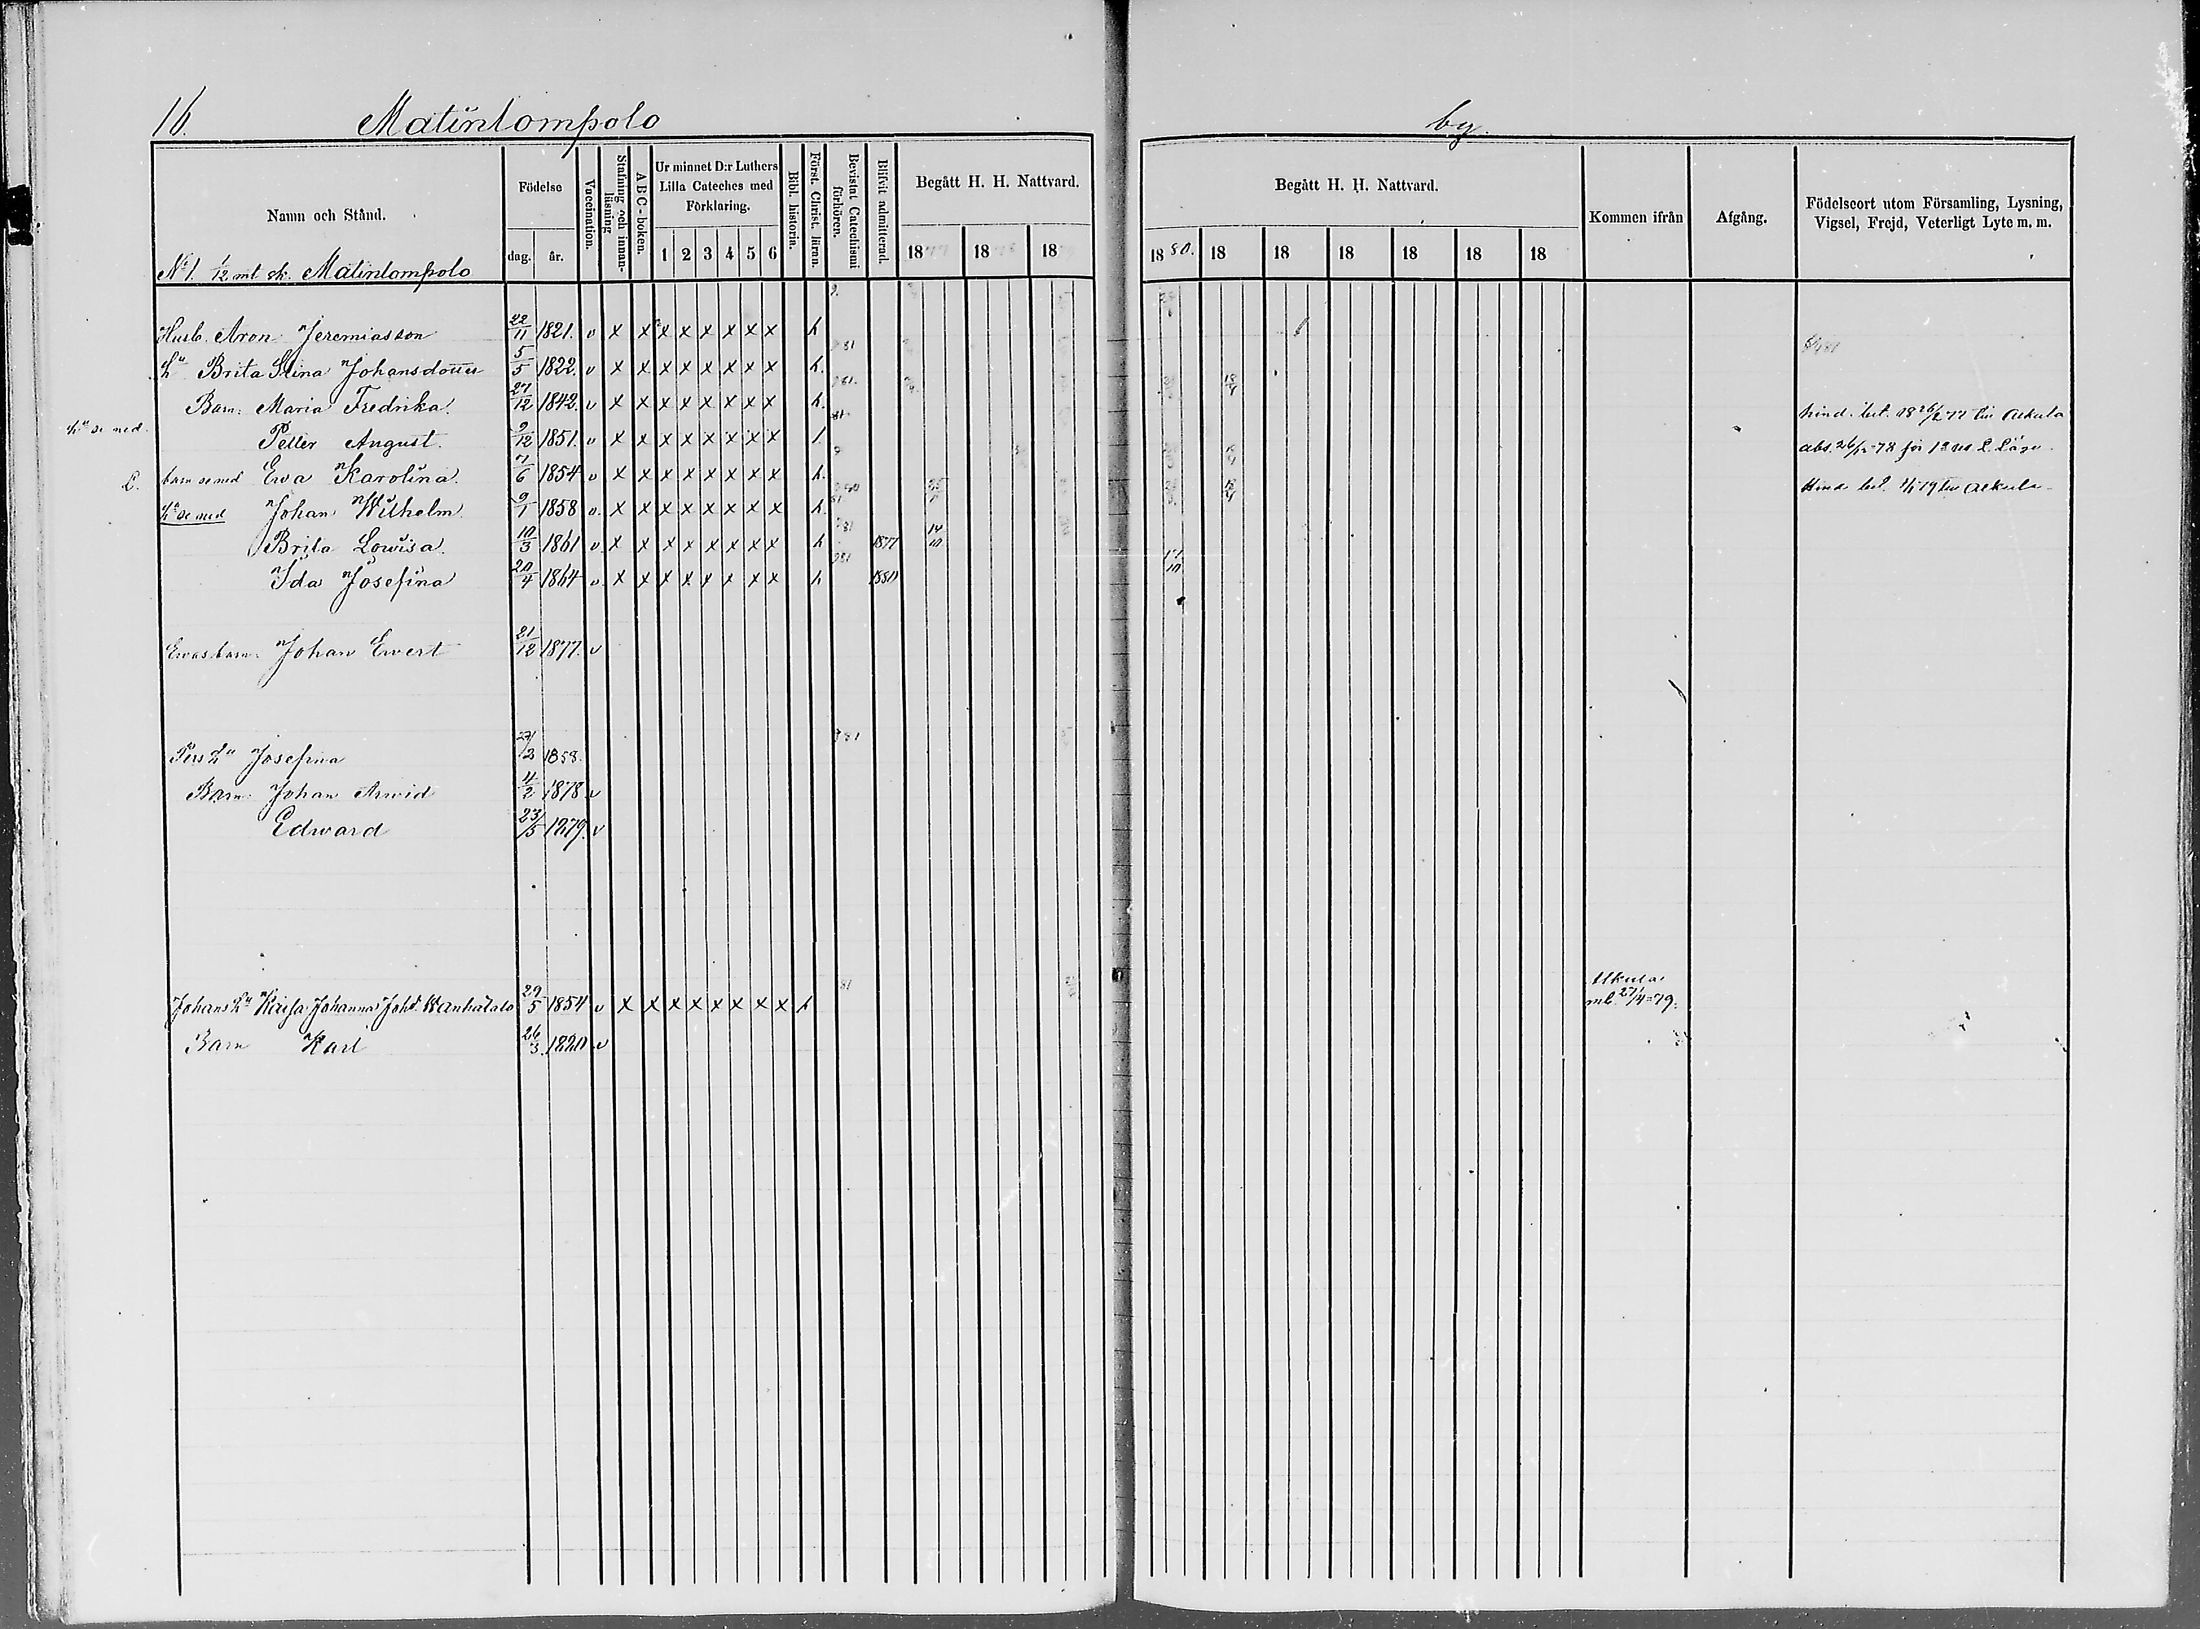 16. Matinlompolo by.
Namn och Stånd. Födelse Vaccination. Stafning och innanläsning A B C-boken. Ur minnet D:r Luthers Lilla Cateches med Förklaring. Bibl. historia. Först. Christ. läran. Bevistat Catechismi förhören. Blifvit admitterad. Begått H. H. Nattvard. Begått H. H. Nattvard. Kommen ifrån Afgång. Födelseort utom Församling, Lysning, Vigsel, Frejd, Veterligt Lyte m. m.
dag. år. 1 2 3 4 5 6 1877 18 18 1880. 18 18 18 18 18 18
No 1. 1/12 mt sk. Matinlompolo
Husb. Aron Jeremiasson 22/11 1821. v x x x x x x x x h
Hu Brita Stina Johansdotter 5/5 1822. v x x x x x x x x h. 81
Barn: Maria Fredrika. 27/12 1842. v x x x x x x x x h. 81. hind. bet. 18 26/2 77 till Alkula
Hu se ned. Petter August. 9/12 1851. v x x x x x x x x 81 abs. 26/12 78 för
barn se ned Ewa Karolina. 7/6 1854 v x x x x x x x x h. Hind. bet. 79 till Alkula
Hu se ned Johan Wilhelm 9/1 1858 v. x x x x x x x x h. 81
Brita Lowisa. 10/3 1861 v. x x x x x x x x h 81 1877 14/10
Ida Josefina 20/4 1864 v. x x x x x x x x h 81 1880 17/10
Ewas barn. Johan Ewert 21/12 1877. v
Pers Hu Josefina 27/2 1858. 81
Barn. Johan Arwid 4/2 1878 v
Edward 23/5 1879. v
Johans Hu Kaisa Johanna Johd. Wanhatalo 29/5 1854 v x x x x x x x x h 81 Alkula ml. 27/4-79.
Barn Karl 26/3 1880 v